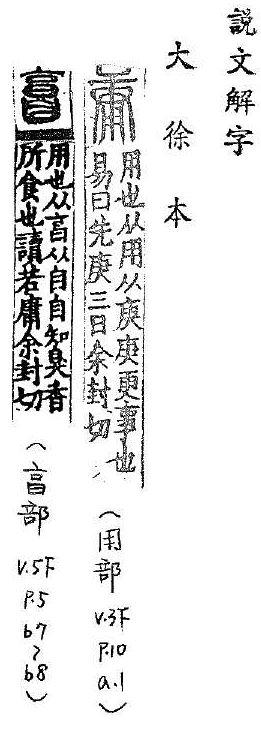 說文解字
大徐本
庸
用也从用从庚庚更事也
易曰先庚三日余封切
(用部 V.3F P.10 a.1)
𦤘
用也从亯从自自知臭香
所食也讀若庸余封切
(亯部 V.5F P.5 b7~b8)